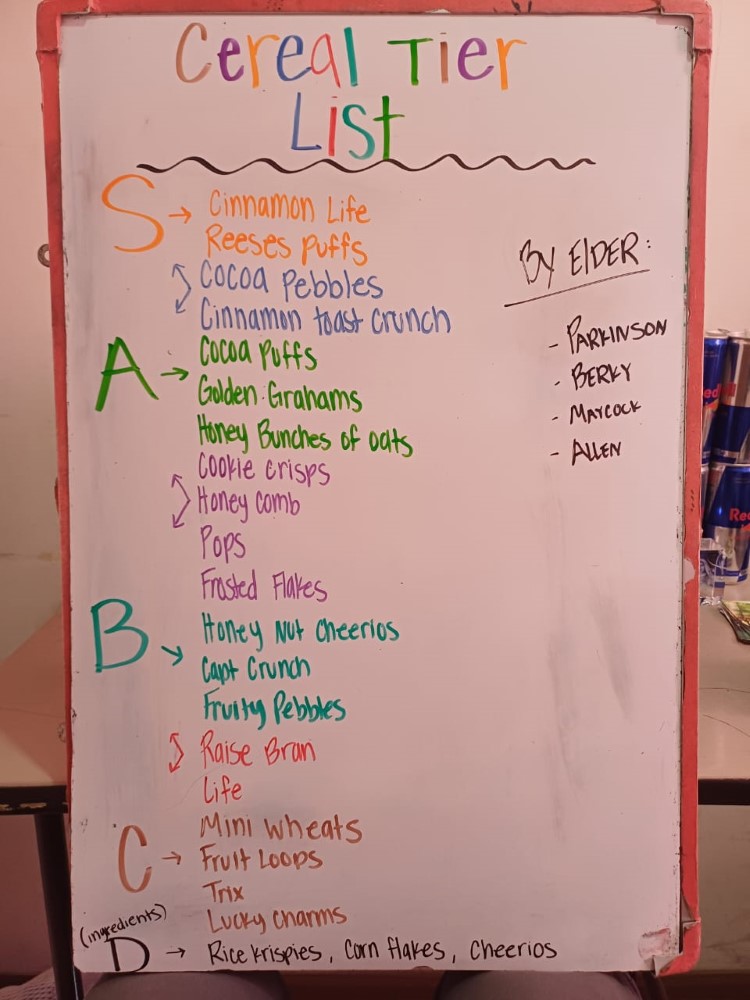 Cereal Tier
List
S → Cinnamon Life
Reeses Puffs
Cocoa Pebbles
Cinnamon toast crunch
A → Cocoa Puffs
Golden Grahams
Honey Bunches of oats
Cookie crisps
Honey comb
Pops
Frosted Flakes
B → Honey Nut Cheerios
Capt Crunch
Fruity Pebbles
Raise Bran
Life
Mini Wheats
C → Fruit Loops
Trix
Lucky Charms
(ingredients)
D → Rice krispies, Corn flakes, Cheerios
By ElDER:
- PARKINSON
- BERKY
- MAYCOCK
- ALLEN
Red